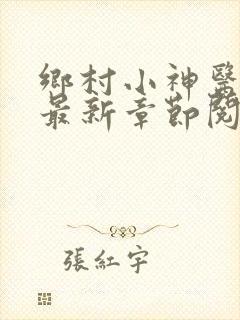 鄉村小神醫
最新章節閱
張紅宇